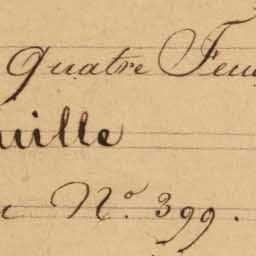 Quatre Feu
uille
c No. 399.